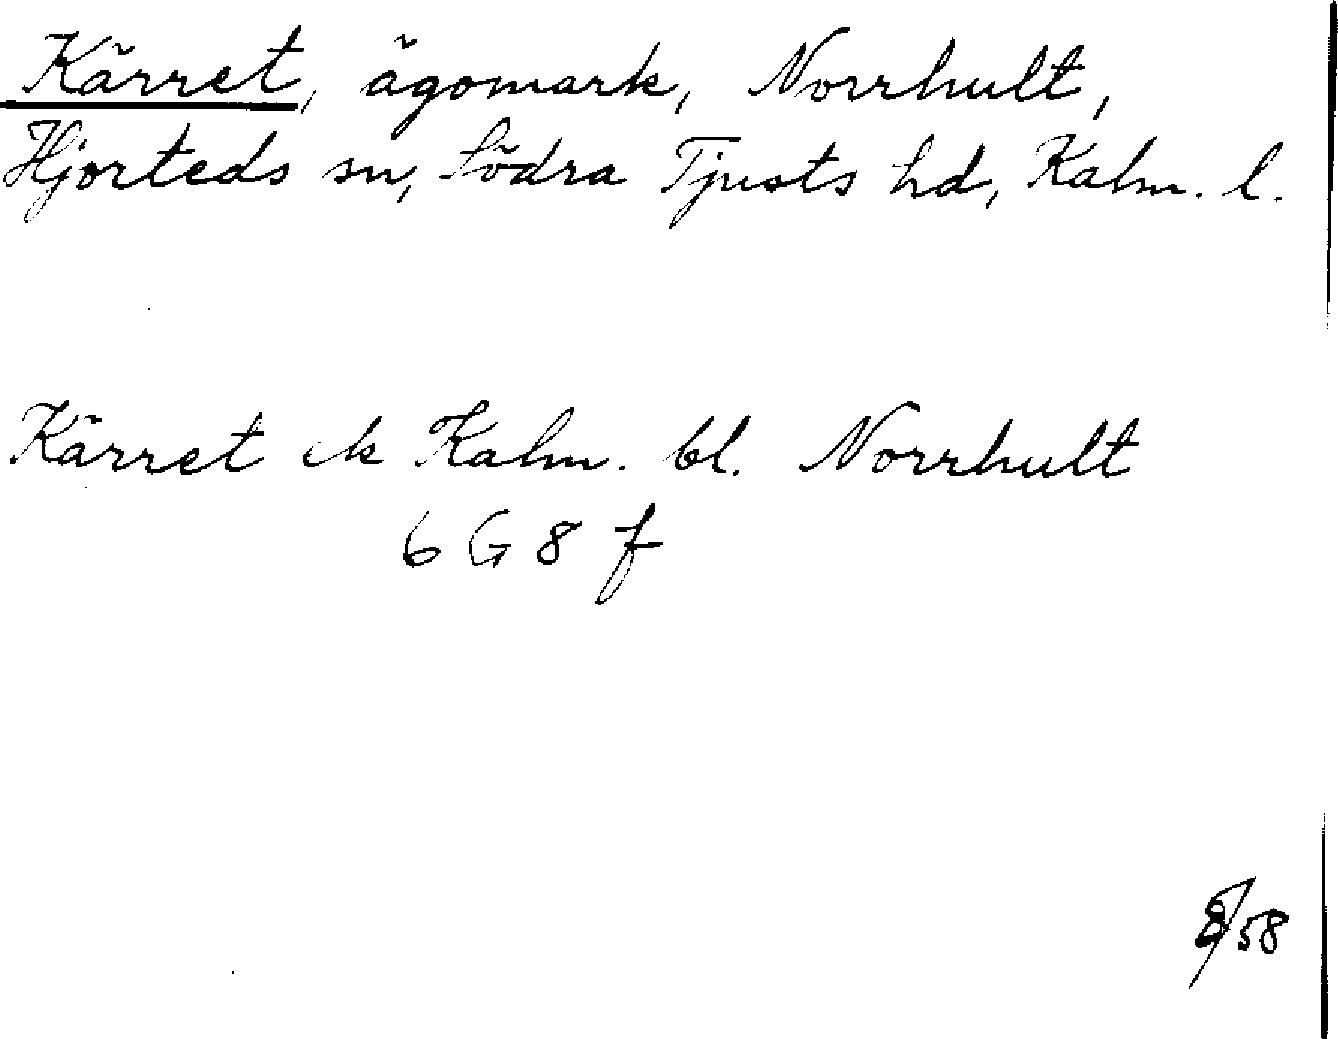 Kärret, ägomark, Norrhult,
Hjorteds sn, Södra Tjusts hd, Kalm. l.
Kärret ek Kalm. bl. Norrhult
6 G 8 f
8/58